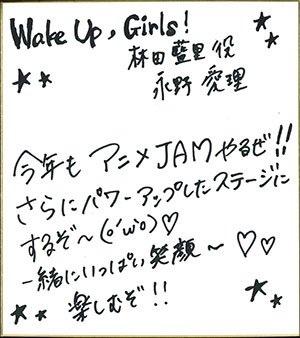 Wake Up, Girls!
林田藍里役
永野愛理
今年も アニメJAMやるぜ!!
さらにパワーアップしたステージに
するぞ〜(o´ω`o)♡
一緒にいっぱい笑顔〜♡♡
楽しむぞ!!